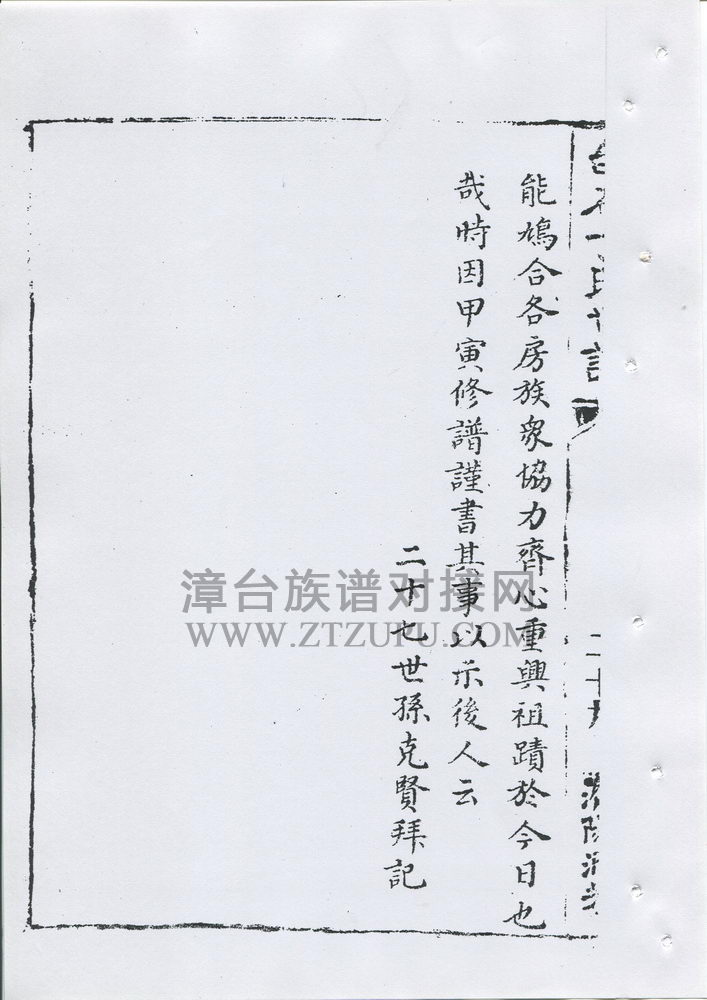 能鳩合各房族衆協力齊心重興祖蹟於今日也
哉時因甲寅修譜謹書其事以示後人云
二十七世孫克賢拜記
二十九
漳台族谱对接网
WWW.ZTZUPU.COM